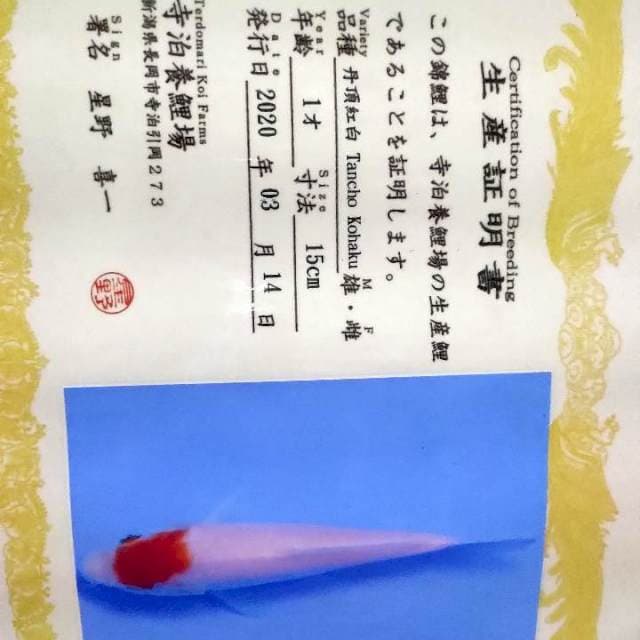 Certification of Breeding
生産証明書
この錦鯉は、寺泊養鯉場の生産鯉
であることを証明します。
Variety M F
品種 丹頂紅白 Tancho Kohaku 雄・雌
Year Size
年齢 1才 寸法 15cm
Date
発行日 2020 年 03 月 14 日
Terdomari Koi Farms
寺泊養鯉場
新潟県長岡市寺泊引岡273
Sign
署名 星野 喜一
星野